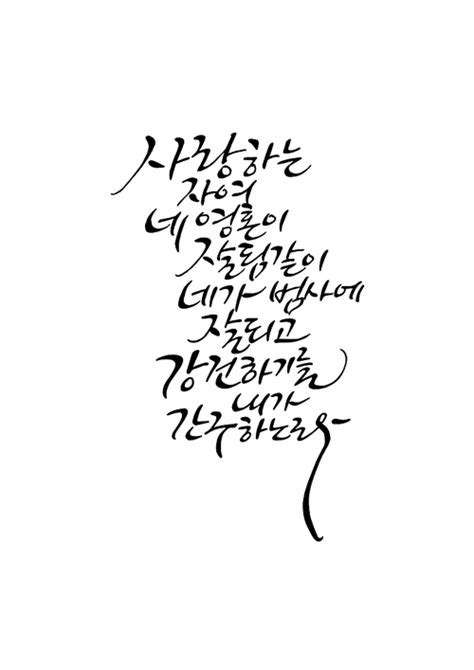 사랑하는
자여
네 영혼이
잘됨같이
네가 범사에
잘되고
강건하기를
내가
간구하노라